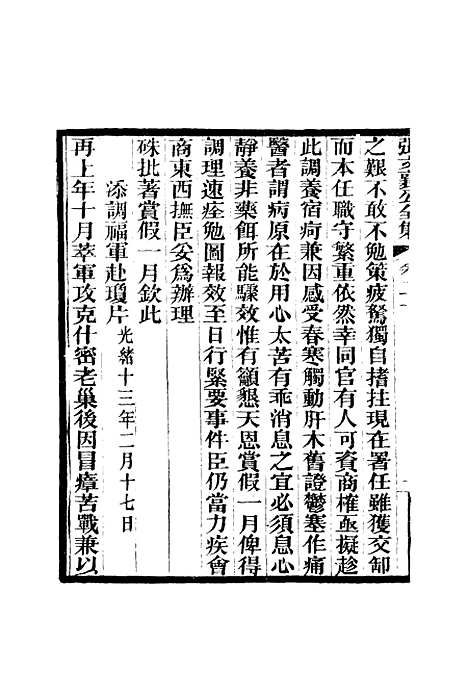 張文襄公全集　卷二十
之艱不敢不勉策疲駑獨自搘拄現在署任雖獲交卸
而本任職守繁重依然幸同官有人可資商榷亟擬趁
此調養宿疴兼因感受春寒觸動肝木舊證鬱塞作痛
醫者謂病原在於用心太苦有乖消息之宜必須息心
靜養非藥餌所能驟效惟有籲懇天恩賞假一月俾得
調理速痊勉圖報效至日行緊要事件臣仍當力疾會
商東西撫臣妥爲辦理
硃批著賞假一月欽此
添調福軍赴瓊片光緒十三年二月十七日
再上年十月萃軍攻克什密老巢後因冒瘴苦戰兼以